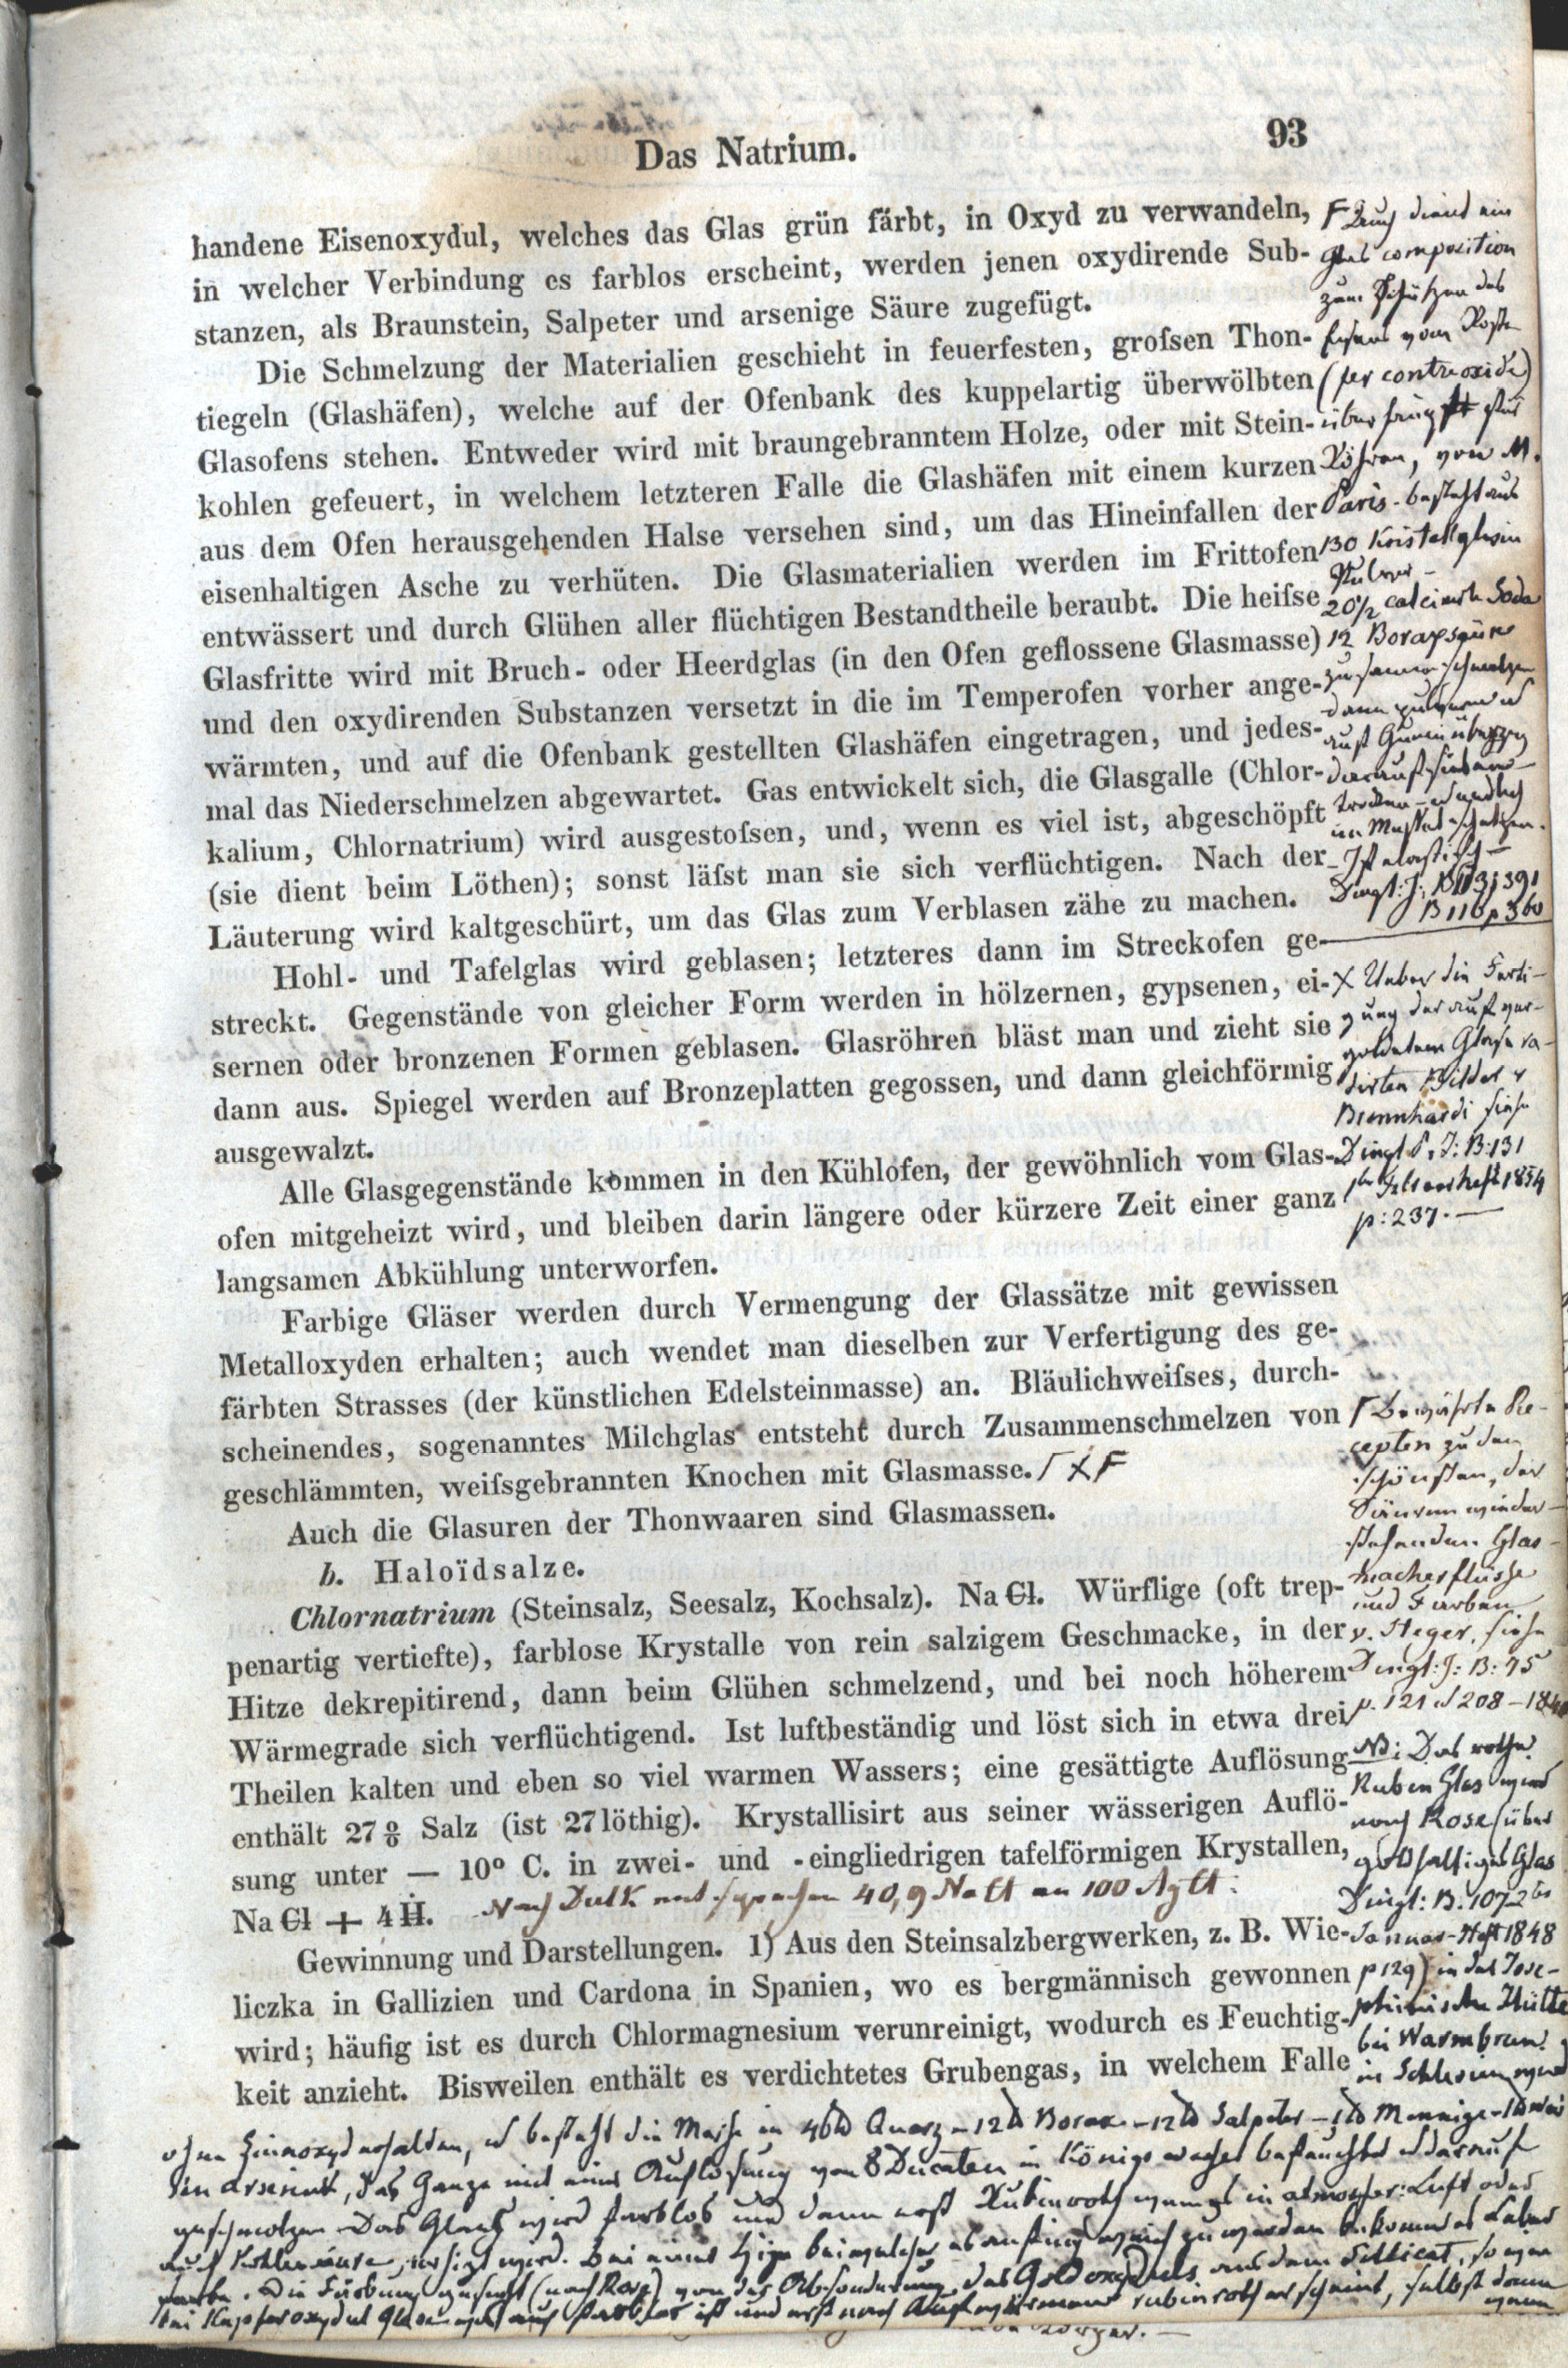 Das Natrium.
93
handene Eisenoxydul, welches das Glas grün färbt, in Oxyd zu verwandeln,
in welcher Verbindung es farblos erscheint, werden jenen oxydirende Sub-
stanzen, als Braunstein, Salpeter und arsenige Säure zugefügt.
Die Schmelzung der Materialien geschieht in feuerfesten, groſsen Thon-
tiegeln (Glashäfen), welche auf der Ofenbank des kuppelartig überwölbten
Glasofens stehen. Entweder wird mit braungebranntem Holze, oder mit Stein-
kohlen gefeuert, in welchem letzteren Falle die Glashäfen mit einem kurzen
aus dem Ofen herausgehenden Halse versehen sind, um das Hineinfallen der
eisenhaltigen Asche zu verhüten. Die Glasmaterialien werden im Frittofen
entwässert und durch Glühen aller flüchtigen Bestandtheile beraubt. Die heiſse
Glasfritte wird mit Bruch- oder Heerdglas (in den Ofen geflossene Glasmasse)
und den oxydirenden Substanzen versetzt in die im Temperofen vorher ange-
wärmten, und auf die Ofenbank gestellten Glashäfen eingetragen, und jedes-
mal das Niederschmelzen abgewartet. Gas entwickelt sich, die Glasgalle (Chlor-
kalium, Chlornatrium) wird ausgestoſsen, und, wenn es viel ist, abgeschöpft
(sie dient beim Löthen); sonst läſst man sie sich verflüchtigen. Nach der
Läuterung wird kaltgeschürt, um das Glas zum Verblasen zähe zu machen.
Hohl- und Tafelglas wird geblasen; letzteres dann im Streckofen ge-
streckt. Gegenstände von gleicher Form werden in hölzernen, gypsenen, ei-
sernen oder bronzenen Formen geblasen. Glasröhren bläst man und zieht sie
dann aus. Spiegel werden auf Bronzeplatten gegossen, und dann gleichförmig
ausgewalzt.
Alle Glasgegenstände kommen in den Kühlofen, der gewöhnlich vom Glas-
ofen mitgeheizt wird, und bleiben darin längere oder kürzere Zeit einer ganz
langsamen Abkühlung unterworfen.
Farbige Gläser werden durch Vermengung der Glassätze mit gewissen
Metalloxyden erhalten; auch wendet man dieselben zur Verfertigung des ge-
färbten Strasses (der künstlichen Edelsteinmasse) an. Bläulichweiſses, durch-
scheinendes, sogenanntes Milchglas entsteht durch Zusammenschmelzen von
geschlämmten, weiſsgebrannten Knochen mit Glasmasse. Γ X F
Auch die Glasuren der Thonwaaren sind Glasmassen.
b. Haloïdsalze.
Chlornatrium (Steinsalz, Seesalz, Kochsalz). Na C̶l. Würflige (oft trep-
penartig vertiefte), farblose Krystalle von rein salzigem Geschmacke, in der
Hitze dekrepitirend, dann beim Glühen schmelzend, und bei noch höherem
Wärmegrade sich verflüchtigend. Ist luftbeständig und löst sich in etwa drei
Theilen kalten und eben so viel warmen Wassers; eine gesättigte Auflösung
enthält 27 % Salz (ist 27 löthig). Krystallisirt aus seiner wässerigen Auflö-
sung unter — 10° C. in zwei- und -eingliedrigen tafelförmigen Krystallen,
Na C̶l + 4 Ḣ. Nach Dulk entsprechen 40,9 Na Cl
Gewinnung und Darstellungen. 1) Aus den Steinsalzbergwerken, z. B. Wie-
liczka in Gallizien und Cardona in Spanien, wo es bergmännisch gewonnen
wird; häufig ist es durch Chlormagnesium verunreinigt, wodurch es Feuchtig-
keit anzieht. Bisweilen enthält es verdichtetes Grubengas, in welchem Falle
F Auch dient ein
Glas composition
zum Schützen des
Eisens vom Roste
(fer contreoxidé)
Röhren, von M.
Paris - besteht aus
130 Kristallglas in
Pulver -
20½ calcinirte Soda
12 Boraxsäure
zusammenschmelzen
dann pulvern
Ist elastisch -
B 116 p 360
X Ueber die Ferti-
gung der auf ver-
goldetem Glase ra-
dirten Bilder v
siehe
Dingl P. J: B: 131
Heft 1854
p: 237. —
Γ Bewährte Re-
cepten zu den
schönsten, der
Säuren wieder-
stehenden Glas-
macherflüsse
und Farben
v. Heger, siehe
Dingl: J: B: 75
p. 121 208 - 1840
NB: Das rothe
Rubin Glas wird
nach Rose (über
goldhaltiges Glas
Dingl: B: 107 2tes
Januar-Heft 1848
p 129) in der Jose-
phinischen Hütte
bei Warmbrunn
in Schlesien
ohne Zinnoxyd erhalten, besteht die Masse in 46 ℔ Quarz - 12 ℔ Borax - 12 ℔ Salpeter - 1 ℔ Mennige - 1 ℔
das Ganze mit einer Auflösung von 8 Ducaten in Königswasser befeuchtet darauf
geschmolzen. Das Glas wird farblos und dann erst Rubinroth in atmosphär: Luft oder
auch Kohlensäure, erhizt wird.
Die Färbung (nach Rose) von der Absonderung des Goldoxyduls aus dem Sillicat, so wie
bei Kupferoxydul farblos ist und erst nach Aufwärmen rubinroth erscheint, selbst dann